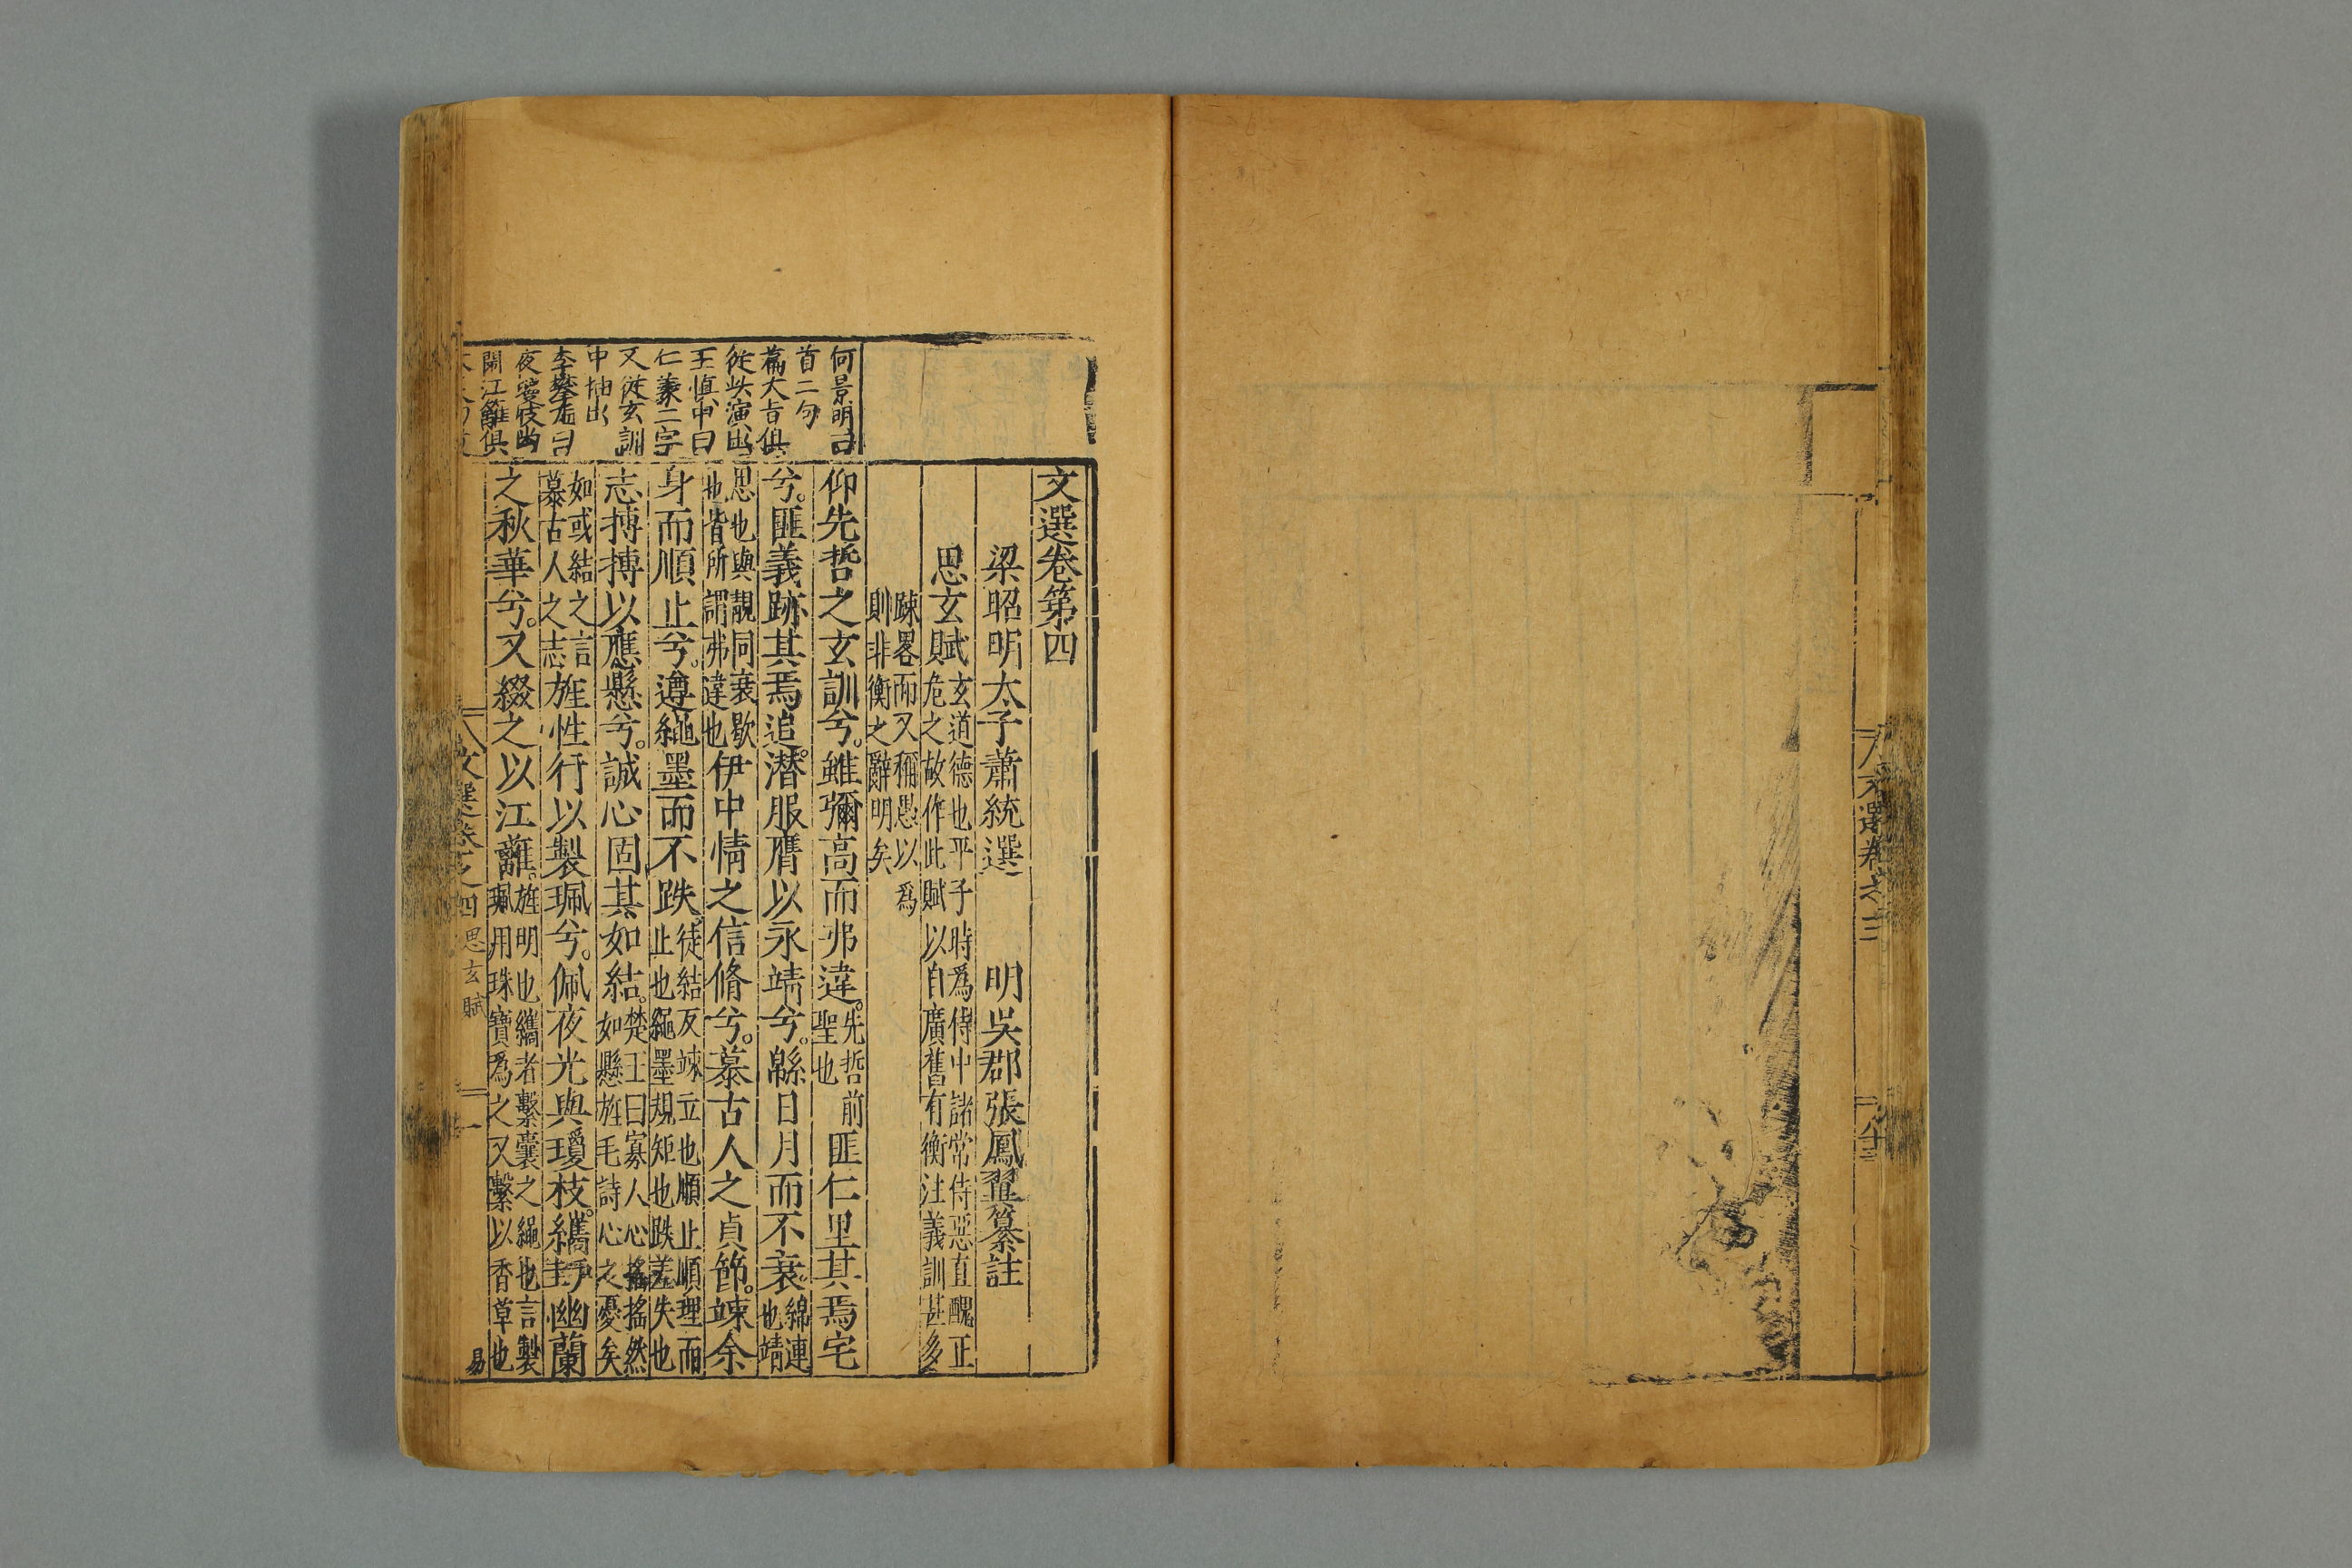 文選卷之三
十三
文選卷第四
梁昭明太子蕭統選 明吳郡張鳳翼纂註
思玄賦 玄道德也平子時爲侍中諸常侍惡直醜正
危之故作此賦以自廣舊有衡注義訓甚多
踈畧而又稱愚以爲
則非衡之辭明矣
仰先哲之玄訓兮。雖彌高而弗違。先哲前聖也匪仁里其焉宅
兮。匪義跡其焉追。潛服膺以永靖兮。緜日月而不衰。綿連也靖
思也與靚同衰歇也皆所謂弗違也伊中情之信脩兮。慕古人之貞節。竦余
身而順止兮。遵繩墨而不跌。徒結反竦立也順止順理而止也繩墨規矩也跌差失也
志摶摶以應懸兮。誠心固其如結。楚王曰寡人心搖搖然如懸旌毛詩心之憂矣
如或結之言慕古人之志旌性行以製珮兮。佩夜光與瓊枝。纗幽蘭
之秋華兮。又綴之以江蘺。旌明也纗者繫囊之繩也言製珮用珠寶爲之又繫以香草也
何景明曰
首二句
篇大旨俱
從此演出
王慎中曰
仁義二字
又從玄訓
中抽出
李攀龍曰
夜瓊枝幽
蘭江蘺俱
文選卷之四 思玄賦 一
易